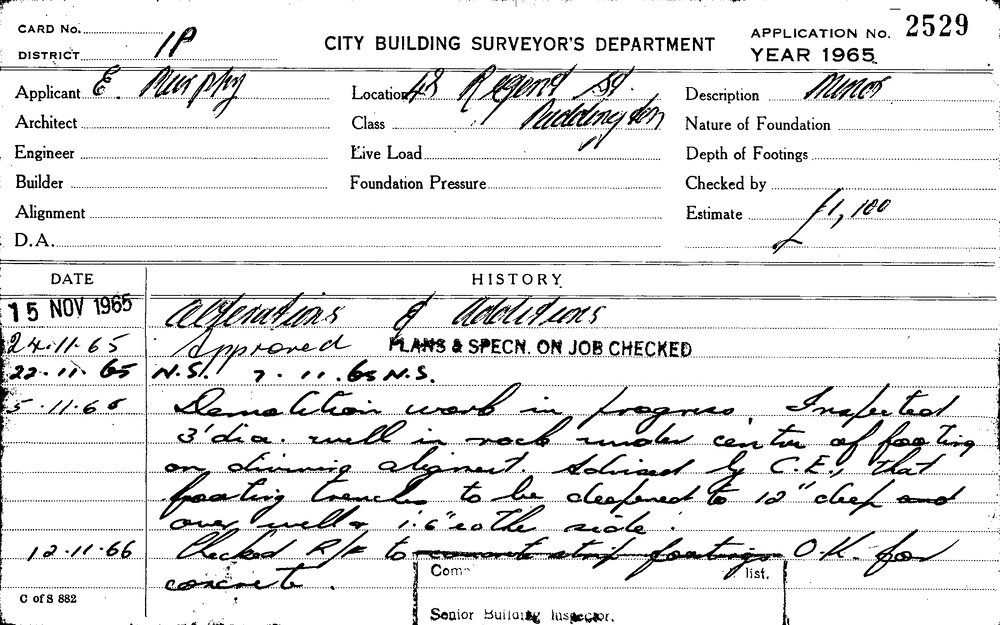 CARD No.
DISTRICT 1P
CITY BUILDING SURVEYOR'S DEPARTMENT
APPLICATION No. 2529
YEAR 1965
Applicant E. Murphy
Location 48 Regent St.
Description Minor
Architect
Class Paddington
Nature of Foundation
Engineer
Live Load
Depth of Footings
Builder
Foundation Pressure
Checked by
Alignment
Estimate £1,100
D.A.
DATE HISTORY
15 NOV 1965 Alterations & additions
24.11.65 Approved PLANS & SPECN. ON JOB CHECKED
22.11.65 N.S. 7.11.65 N.S.
5.11.66 Demolition work in progress. Inspected
3' dia. well in rock under centre of footing
on dividing alignment. Advised by C.E., that
footing trench to be deepened to 12" deep and
over well & 1'.6" either side.
12.11.66 Checked R/F to concrete strip footings O.K. for
concrete.
list.
C of S 882
Senior Building Inspector.